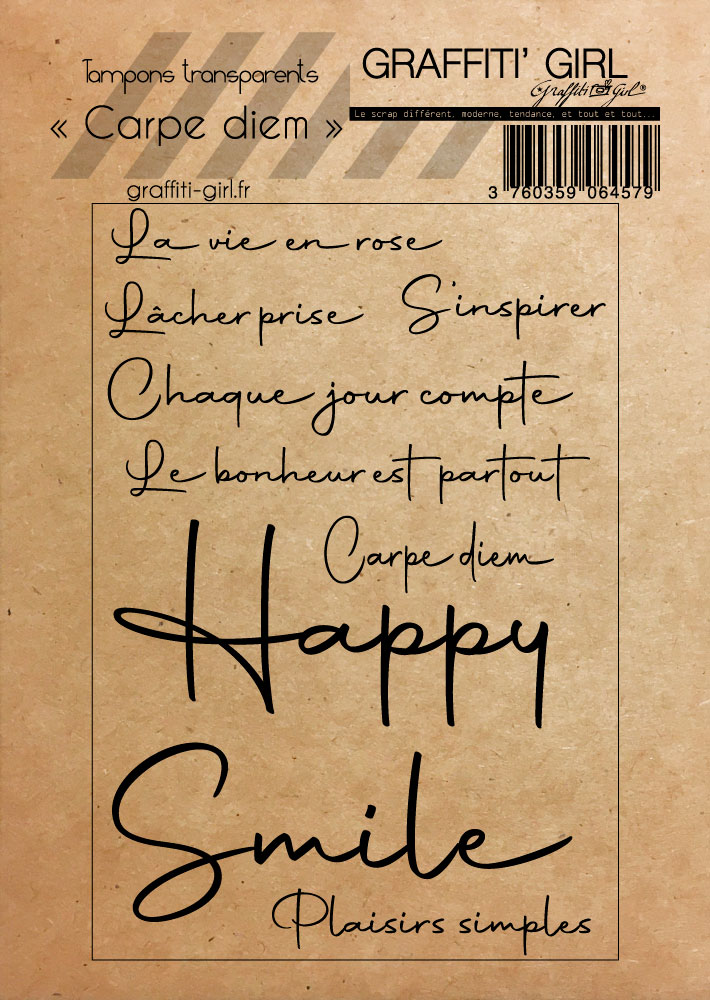 Tampons transparents
« Carpe diem »
graffiti-girl.fr
GRAFFITI' GIRL
Graffiti Girl®
Le scrap différent, moderne, tendance, et tout et tout...
3 760359 064579
La vie en rose
Lâcher prise S'inspirer
Chaque jour compte
Le bonheur est partout
Carpe diem
Happy
Smile
Plaisirs simples